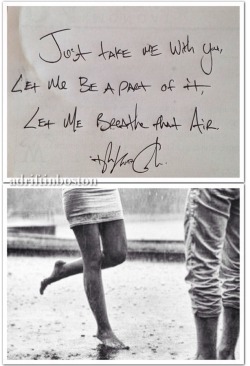 Just take me with you,
Let me Be A part of it,
Let Me Breathe that Air
adriftinboston